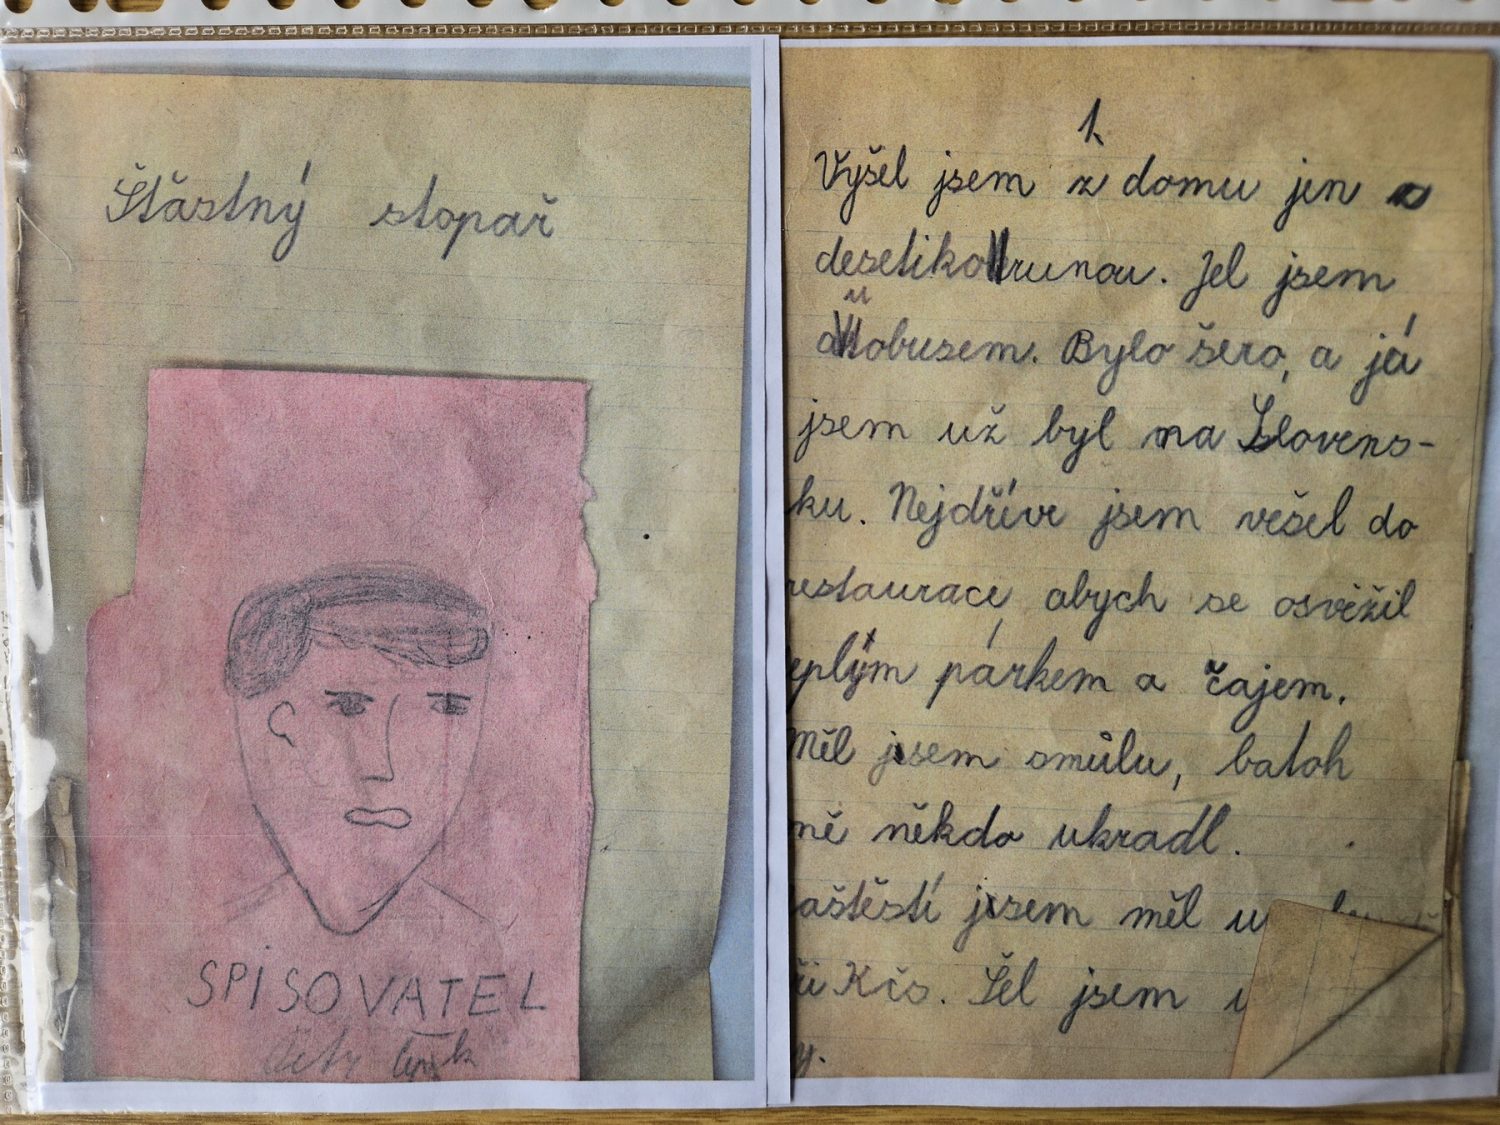 Šťastný stopař
SPISOVATEL
1.
Vyšel jsem z domu jen
desetikorunou. Jel jsem
autobusem. Bylo šero, a já
jsem už byl na Slovens-
ku. Nejdříve jsem vešel do
restaurace abych se osvěžil
eplým párkem a čajem.
Měl jsem smůlu, batoh
mě někdo ukradl.
aštěstí jsem měl u
ři Kčs. Šel jsem
y.